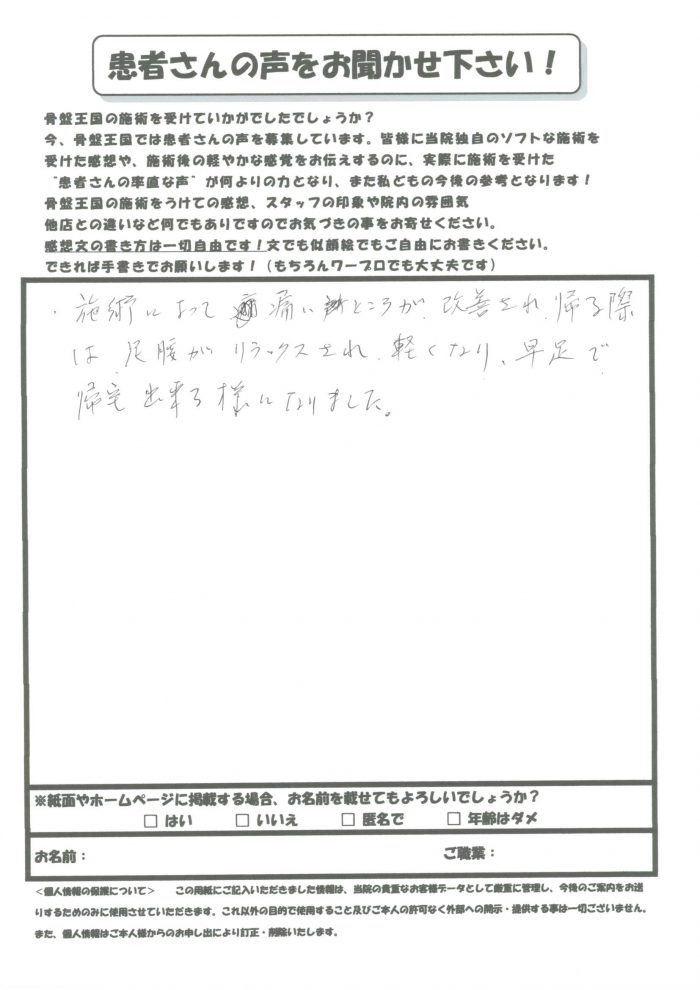 患者さんの声をお聞かせ下さい！
骨盤王国の施術を受けていかがでしたでしょうか？
今、骨盤王国では患者さんの声を募集しています。皆様に当院独自のソフトな施術を
受けた感想や、施術後の軽やかな感覚をお伝えするのに、実際に施術を受けた
"患者さんの率直な声"が何よりの力となり、また私どもの今後の参考となります！
骨盤王国の施術をうけての感想、スタッフの印象や院内の雰囲気
他店との違いなど何でもありですのでお気づきの事をお寄せください。
感想文の書き方は一切自由です！文でも似顔絵でもご自由にお書きください。
できれば手書きでお願いします！（もちろんワープロでも大丈夫です）
・施術によって 痛いところが、改善され、帰る際
は、足腰がリラックスされ、軽くなり、早足で
帰宅出来る様になりました。
※紙面やホームページに掲載する場合、お名前を載せてもよろしいでしょうか？
□ はい □ いいえ □ 匿名で □ 年齢はダメ
お名前： ご職業：
＜個人情報の保護について＞ この用紙にご記入いただきました情報は、当院の貴重なお客様データとして厳重に管理し、今後のご案内をお送
りするためのみに使用させていただきます。これ以外の目的で使用すること及びご本人の許可なく外部への開示・提供する事は一切ございません。
また、個人情報はご本人様からのお申し出により訂正・削除いたします。